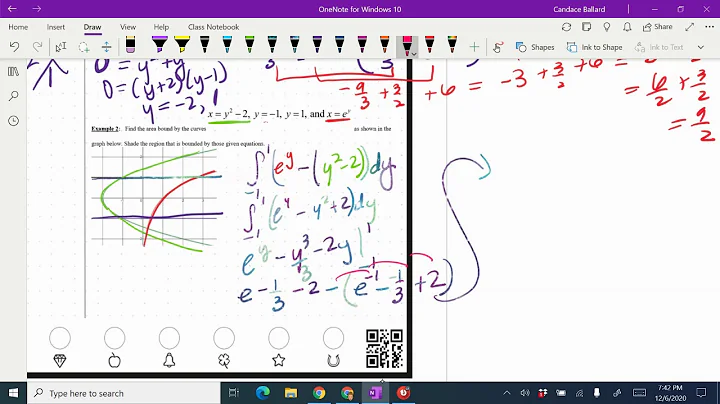 OneNote for Windows 10
Candace Ballard
Home Insert Draw View Help Class Notebook
Share
Shapes Ink to Shape Ink to Text
0 = y² + y
0 = (y+2)(y-1)
y = -2, 1
-9/3 + 3/2 + 6 = -3 + 3/2 + 6 =
6/2 + 3/2
= 9/2
x = y² − 2, y = −1, y = 1, and x = eʸ
Example 2: Find the area bound by the curves as shown in the
graph below. Shade the region that is bounded by those given equations.
∫₋₁¹ (eʸ − (y²−2)) dy
∫₋₁¹ (eʸ − y² + 2) dy
eʸ − y³/3 − 2y |₋₁¹
e − 1/3 − 2 − (e⁻¹ − 1/3 + 2)
Type here to search
7:42 PM
12/6/2020